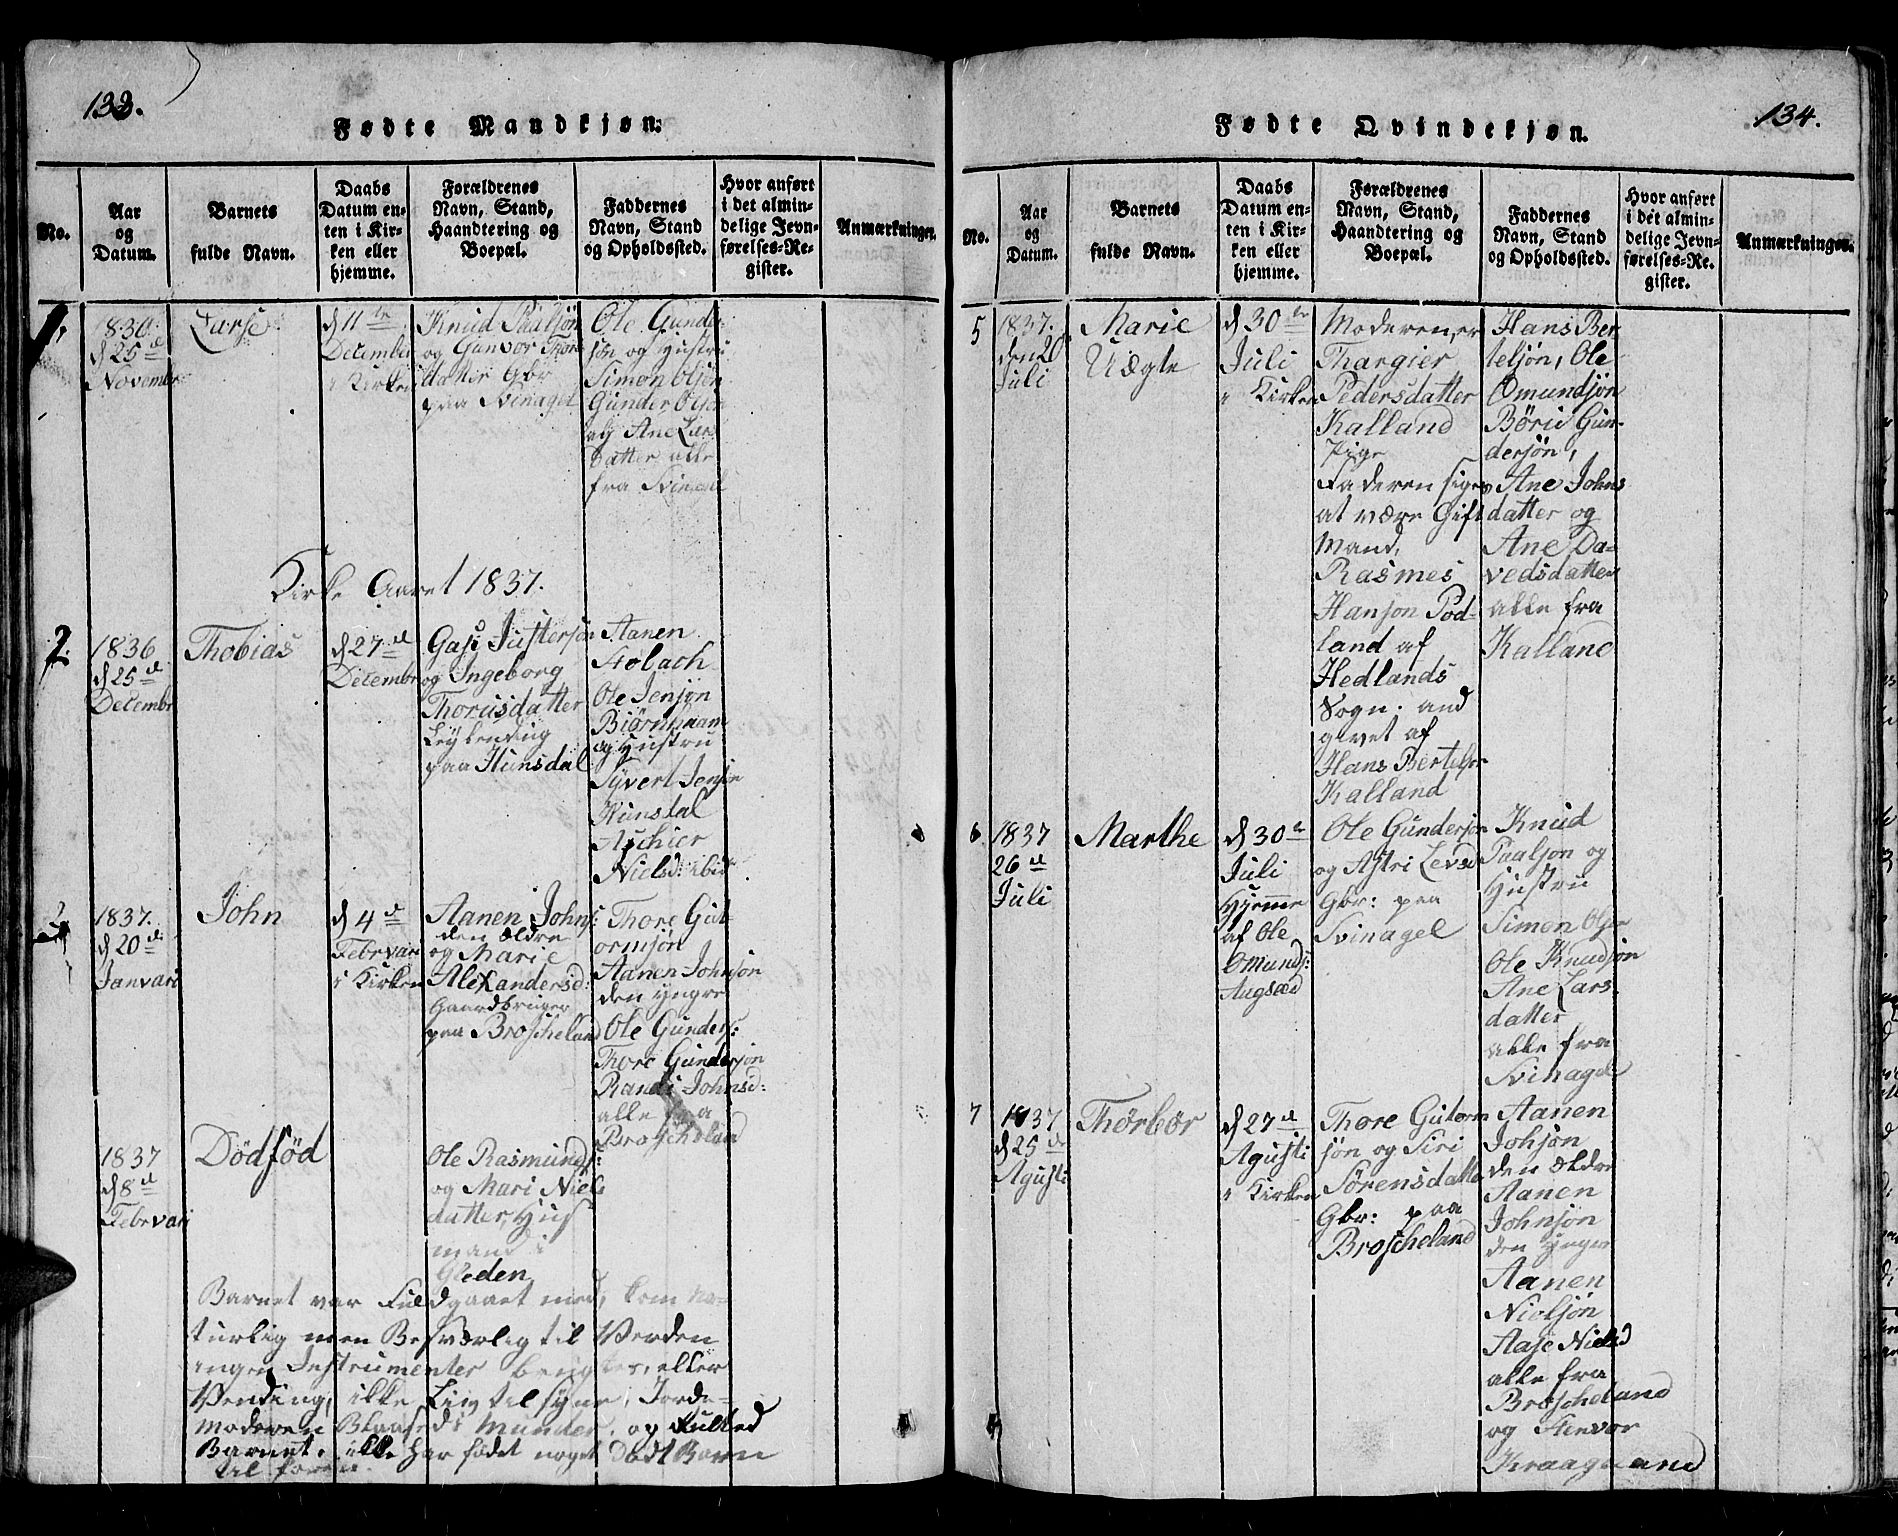 133.
Fødte Mandkjøn.
No.
Aar
og
Datum.
Barnets
fulde Navn.
Daabs
Datum en-
ten i Kir-
ken eller
hjemme.
Forældrenes
Navn, Stand,
Haandtering og
Boepæl.
Faddernes
Navn, Stand
og Opholdssted.
Hvor anført
i det almin-
delige Jevn-
førelses-Re-
gister.
Anmærkninger.
1.
1836.
d 25de
Novembr
Larse
d 11te
December
i Kirken
Knud Paaljøn
og Gunvor Thors
datter Gbr
paa Svinagel
Ole Gunder-
sjøn og Hustru
Simon Olsøn
Gunder Olsøn
og Ane Lars
Datter alle
fra Svinagel
Kirke Aaret 1837.
2.
1836
d 25de
Decembr
Thobias
d 27de
Decembr
Gasi Justersøn
og Ingeborg
Thorusdatter
Leylending
paa Hunsdal
Aanen
Stolach
Ole Jensjøn
Biørnhaam
og Hustru
Syvert Jensjøn
Hunsdal
Aschier
Nielsd: ibid
1837.
d 20de
Janvari
John
d 4de
Febrvari
i Kirken
Aanen Johns:
den Ældre
og Marie
Alexandersd:
Gaardbruger
paa Broscheland
Thore Gut-
ormsjøn
Aanen Johnsjøn
den Yngre
Ole Gunders:
Thore Gundersjøn
Randi Johnsd:
alle fra
Broscheland
1837
d 8de
Febrvari
Dödföd
Ole Rasmunds:
og Mari Niels
datter, Hus
mand i
Gleden
Barnet var Fuldgaaet med, kom na-
turlig men Besværlig til Verden
ingen Instrumenter brugtes, eller
Vending, ikke Liv til syne, Jorde-
moderen Blaasedi Munden, og Rulled
Barnet. ikke har födet noget Dödt Barn
til foren.
134.
Fødte Qvindekjøn.
No.
Aar
og
Datum.
Barnets
fulde Navn.
Daabs
Datum en-
ten i Kir-
ken eller
hjemme.
Forældrenes
Navn, Stand,
Haandtering og
Boepæl.
Faddernes
Navn, Stand
og Opholdssted.
Hvor anført
i det almin-
delige Jevn-
førelses-Re-
gister.
Anmærkninger.
5
1837.
den 20
Juli
Marie
Uægte
d 30te
Juli
i Kirken
Moderen, er
Thargier
Pedersdatter
Kalland
Pige
Faderen siges
at være Gift
Mand,
Rasmes
Hansjon Pod-
land af
Hedlands
Sogn. and
givet af
Hans Bertelsn
Kalland
Hans Ber
teljøn, Ole
Omundsjøn
Børie Gun-
dersjøn,
Ane Johns
datter og
Ane Da-
vedsdatter
alle fra
Kalland
6
1837
26de
Juli
Marthe
d 30te
Juli
Hjemme
af Ole
Omunds:
Augsted
Ole Gundersjøn
og Astri Levsd
Gbr: paa
Svinagel
Knud
Paaljon og
Hustru
Simon Olsn
Ole Knudsjøn
Ane Lars.
datter
alle fra
Svinagel
7
1837
d 25de
Agusti
Thörbor
d 27de
Agusti
i Kirken
Thore Gutorm
sjøn og Siri
Sørensdatter
Gbr: paa
Broscheland
Aanen
Johsjøn
den Ældre
Aanen
Johnsjøn
den Yngre
Aanen
Nielsjøn
Aase Nielsd
alle fra
Broscheland
og Stenvor
Kraageland